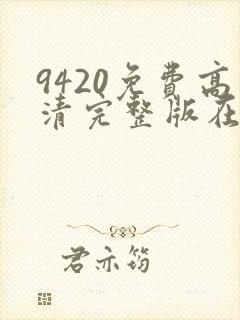 9420免费高
清完整版在
君亦筠